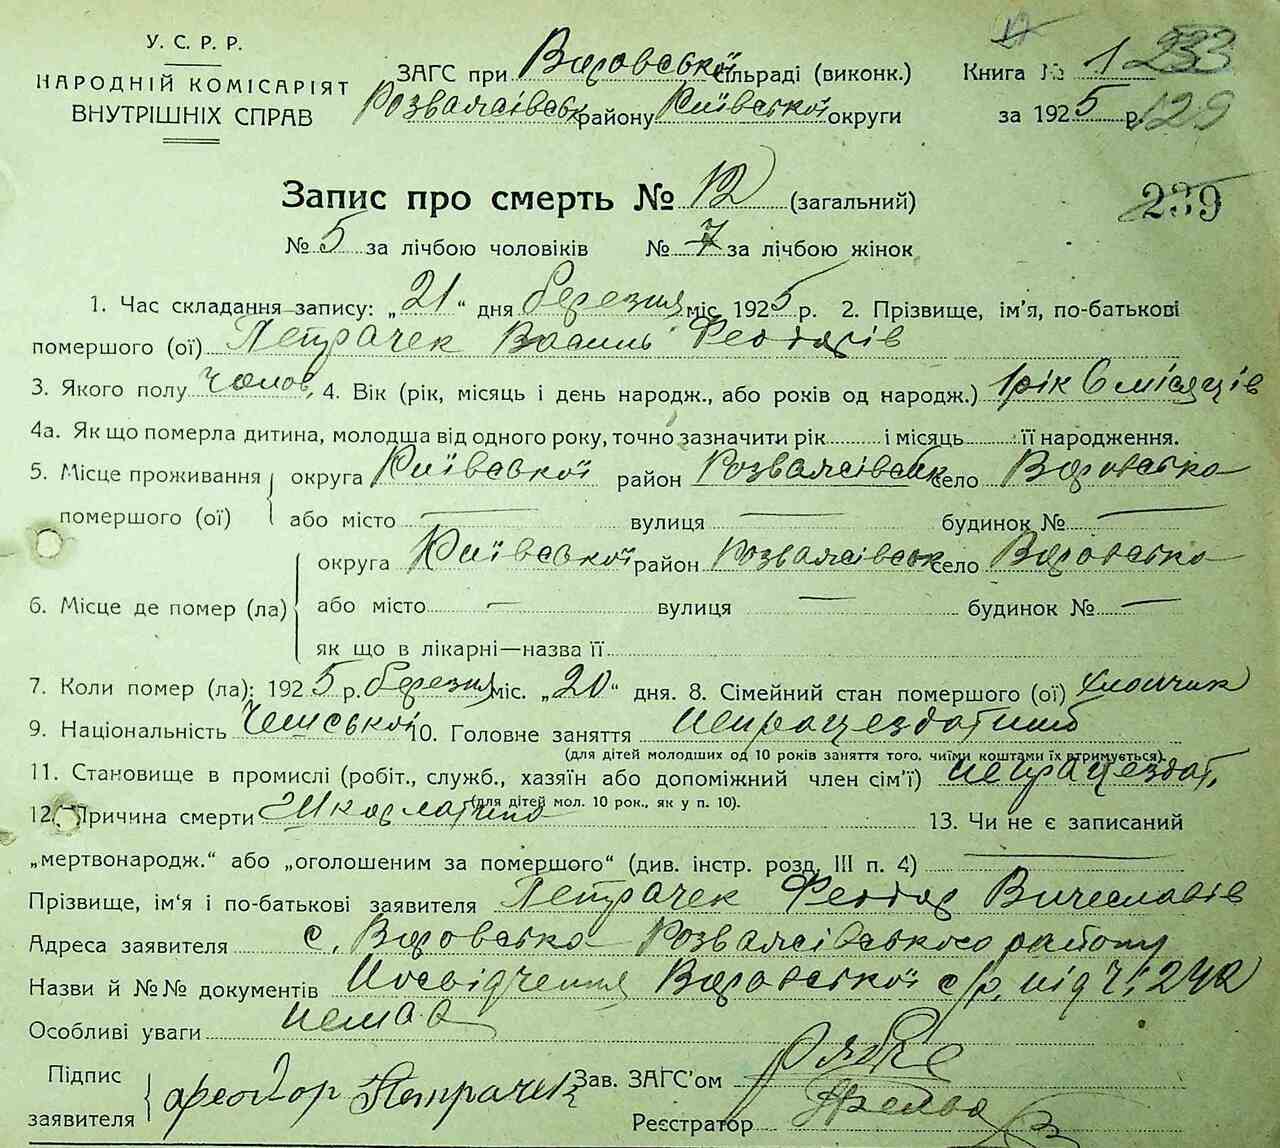 У. С. Р. Р.
НАРОДНІЙ КОМІСАРІЯТ
ВНУТРІШНІХ СПРАВ
ЗАГС при Воровської сільраді (виконк.)
Розважівськ району Київської округи
Книга № 1 233
за 1925 р. 129
Запис про смерть № 12 (загальний)
239
№ 5 за лічбою чоловіків № 7 за лічбою жінок
1. Час складання запису: „21“ дня березня міс. 1925 р. 2. Прізвище, ім’я, по-батькові
помершого (ої) Петрачек Василь Феодорів
3. Якого полу Чолов. 4. Вік (рік, місяць і день народж., або років од народж.) 1 рік 6 місяців
4а. Як що померла дитина, молодша від одного року, точно зазначити рік і місяць її народження.
5. Місце проживання помершого (ої) округа Київської район Розважівськ село Воровсько
або місто — вулиця — будинок № —
6. Місце де помер (ла) округа Київської район Розважівськ село Воровсько
або місто — вулиця — будинок № —
як що в лікарні—назва її
7. Коли помер (ла): 1925 р. березня міс. „20“ дня. 8. Сімейний стан помершого (ої) хлопчик
9. Національність Чешської 10. Головне заняття непрацездатний
(для дітей молодших од 10 років заняття того, чиїми коштами їх втримується).
11. Становище в промислі (робіт., служб., хазяїн або допоміжний член сім’ї) непрацездат.
(для дітей мол. 10 рок., як у п. 10).
12. Причина смерти Шкарлатина 13. Чи не є записаний
„мертвонародж.“ або „оголошеним за помершого“ (див. інстр. розд. III п. 4) —
Прізвище, ім‘я і по-батькові заявителя Петрачек Феодор Вичеславів
Адреса заявителя с. Воровсько Розважівського району
Назви й №№ документів Посвідчення Воровської с/р. під ч: 242
Особливі уваги немає
Підпис заявителя Феодор Петрачек Зав. ЗАГС’ом
Реєстратор